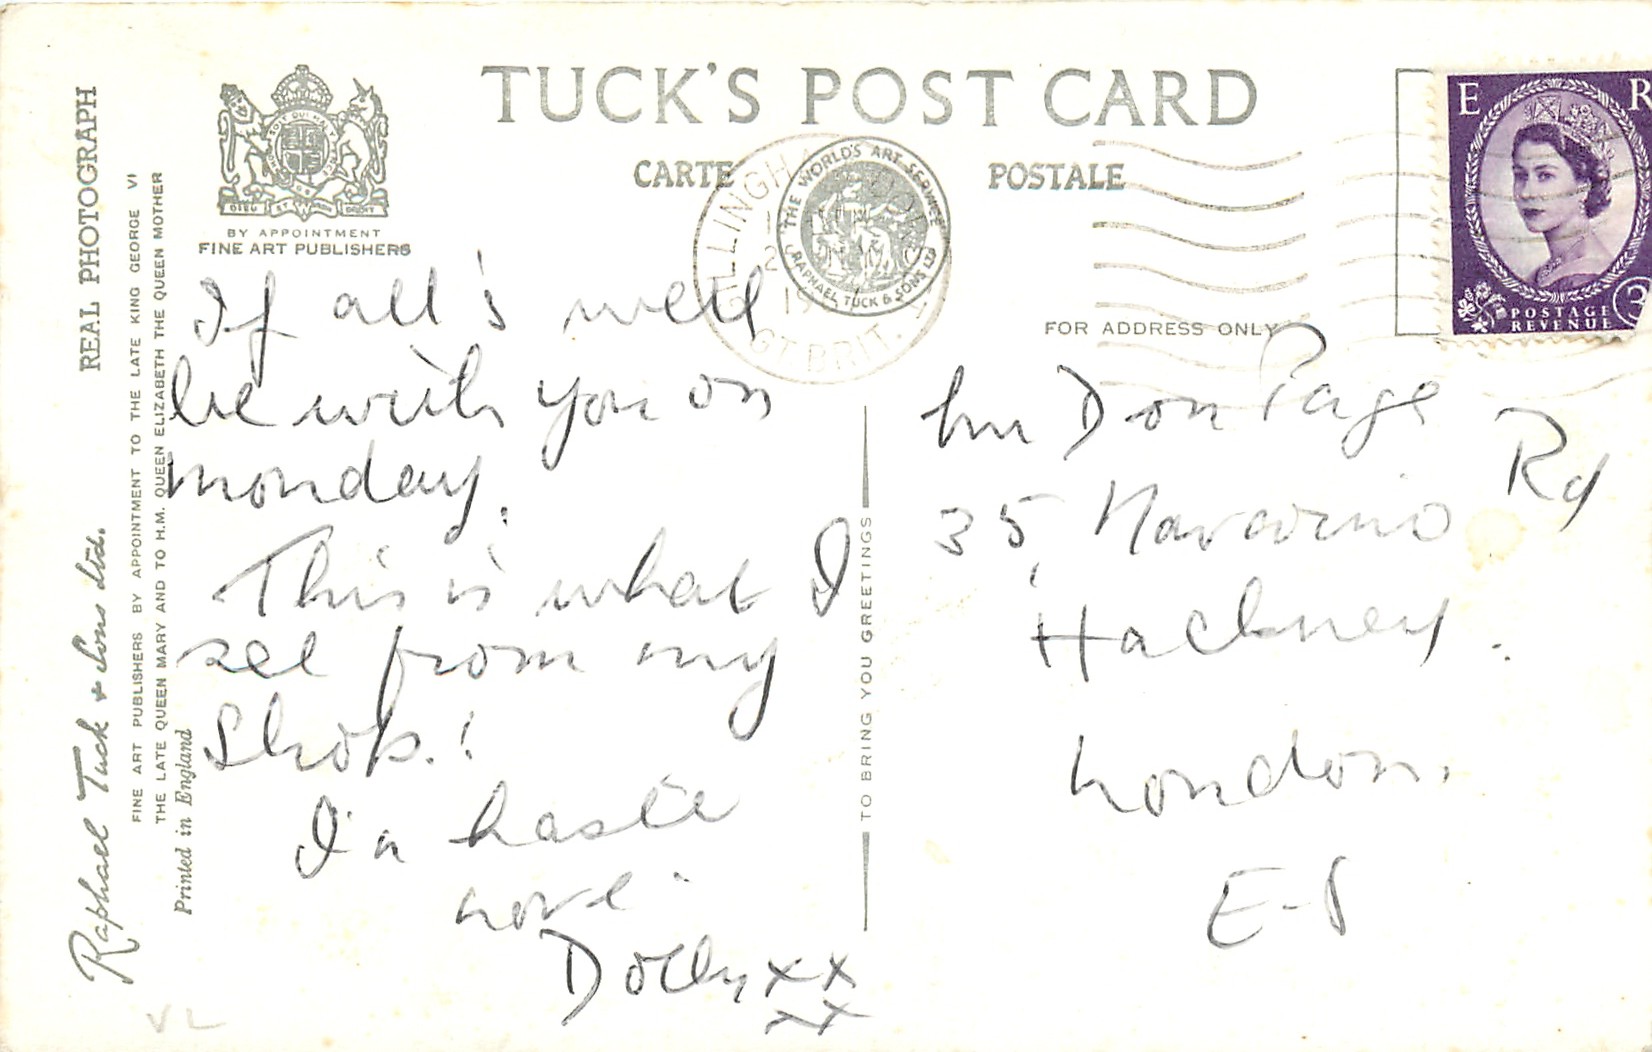 TUCK'S POST CARD
CARTE POSTALE
BY APPOINTMENT
FINE ART PUBLISHERS
DIEU ET MON DROIT
THE WORLD'S ART SERVICE
RAPHAEL TUCK & SONS LTD
GILLINGHAM
19
GT BRIT.
E R
POSTAGE
REVENUE
3
FOR ADDRESS ONLY
REAL PHOTOGRAPH
Raphael Tuck & Sons Ltd.
FINE ART PUBLISHERS BY APPOINTMENT TO THE LATE KING GEORGE VI
THE LATE QUEEN MARY AND TO H.M. QUEEN ELIZABETH THE QUEEN MOTHER
Printed in England
If all's well
be with you on
monday.
This is what I
see from my
Shop.!
In haste
love.
Dolly xx
xx
TO BRING YOU GREETINGS
Mr Don Page
35, Navarino Rd
Hackney.
London.
E-8
VL